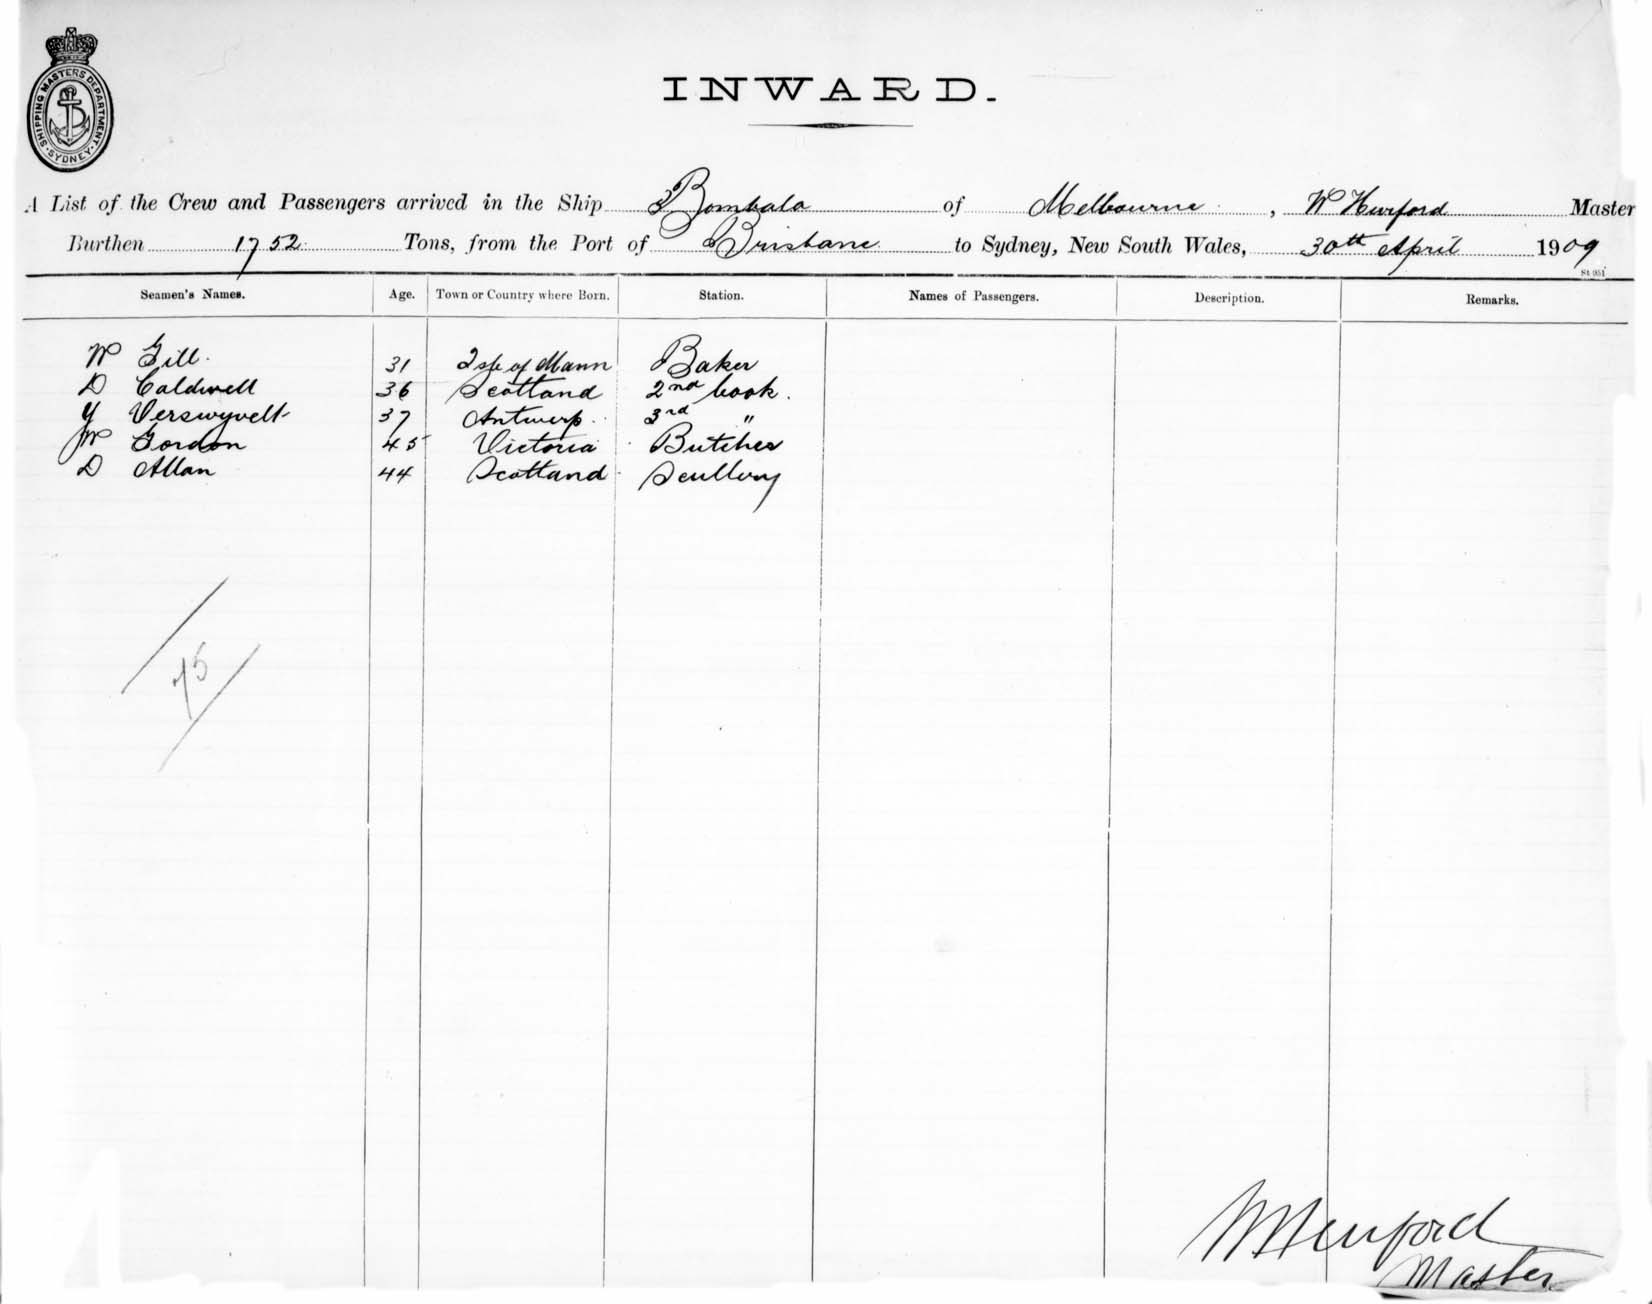 SHIPPING MASTERS DEPARTMENT. SYDNEY.
INWARD.
A List of the Crew and Passengers arrived in the Ship Bombala of Melbourne, W Hurford Master
Burthen 1752 Tons, from the Port of Brisbane to Sydney, New South Wales, 30th April 1909
St 951
Seamen's Names. Age. Town or Country where Born. Station. Names of Passengers. Description. Remarks.
W Gill. 31 Isle of Mann Baker
D Caldwell 36 Scotland 2nd Cook.
Y Verswyvelt 37 Antwerp. 3rd "
W Gordon 45 Victoria Butcher
D Allan 44 Scotland Scullery
75
W Hurford
Master